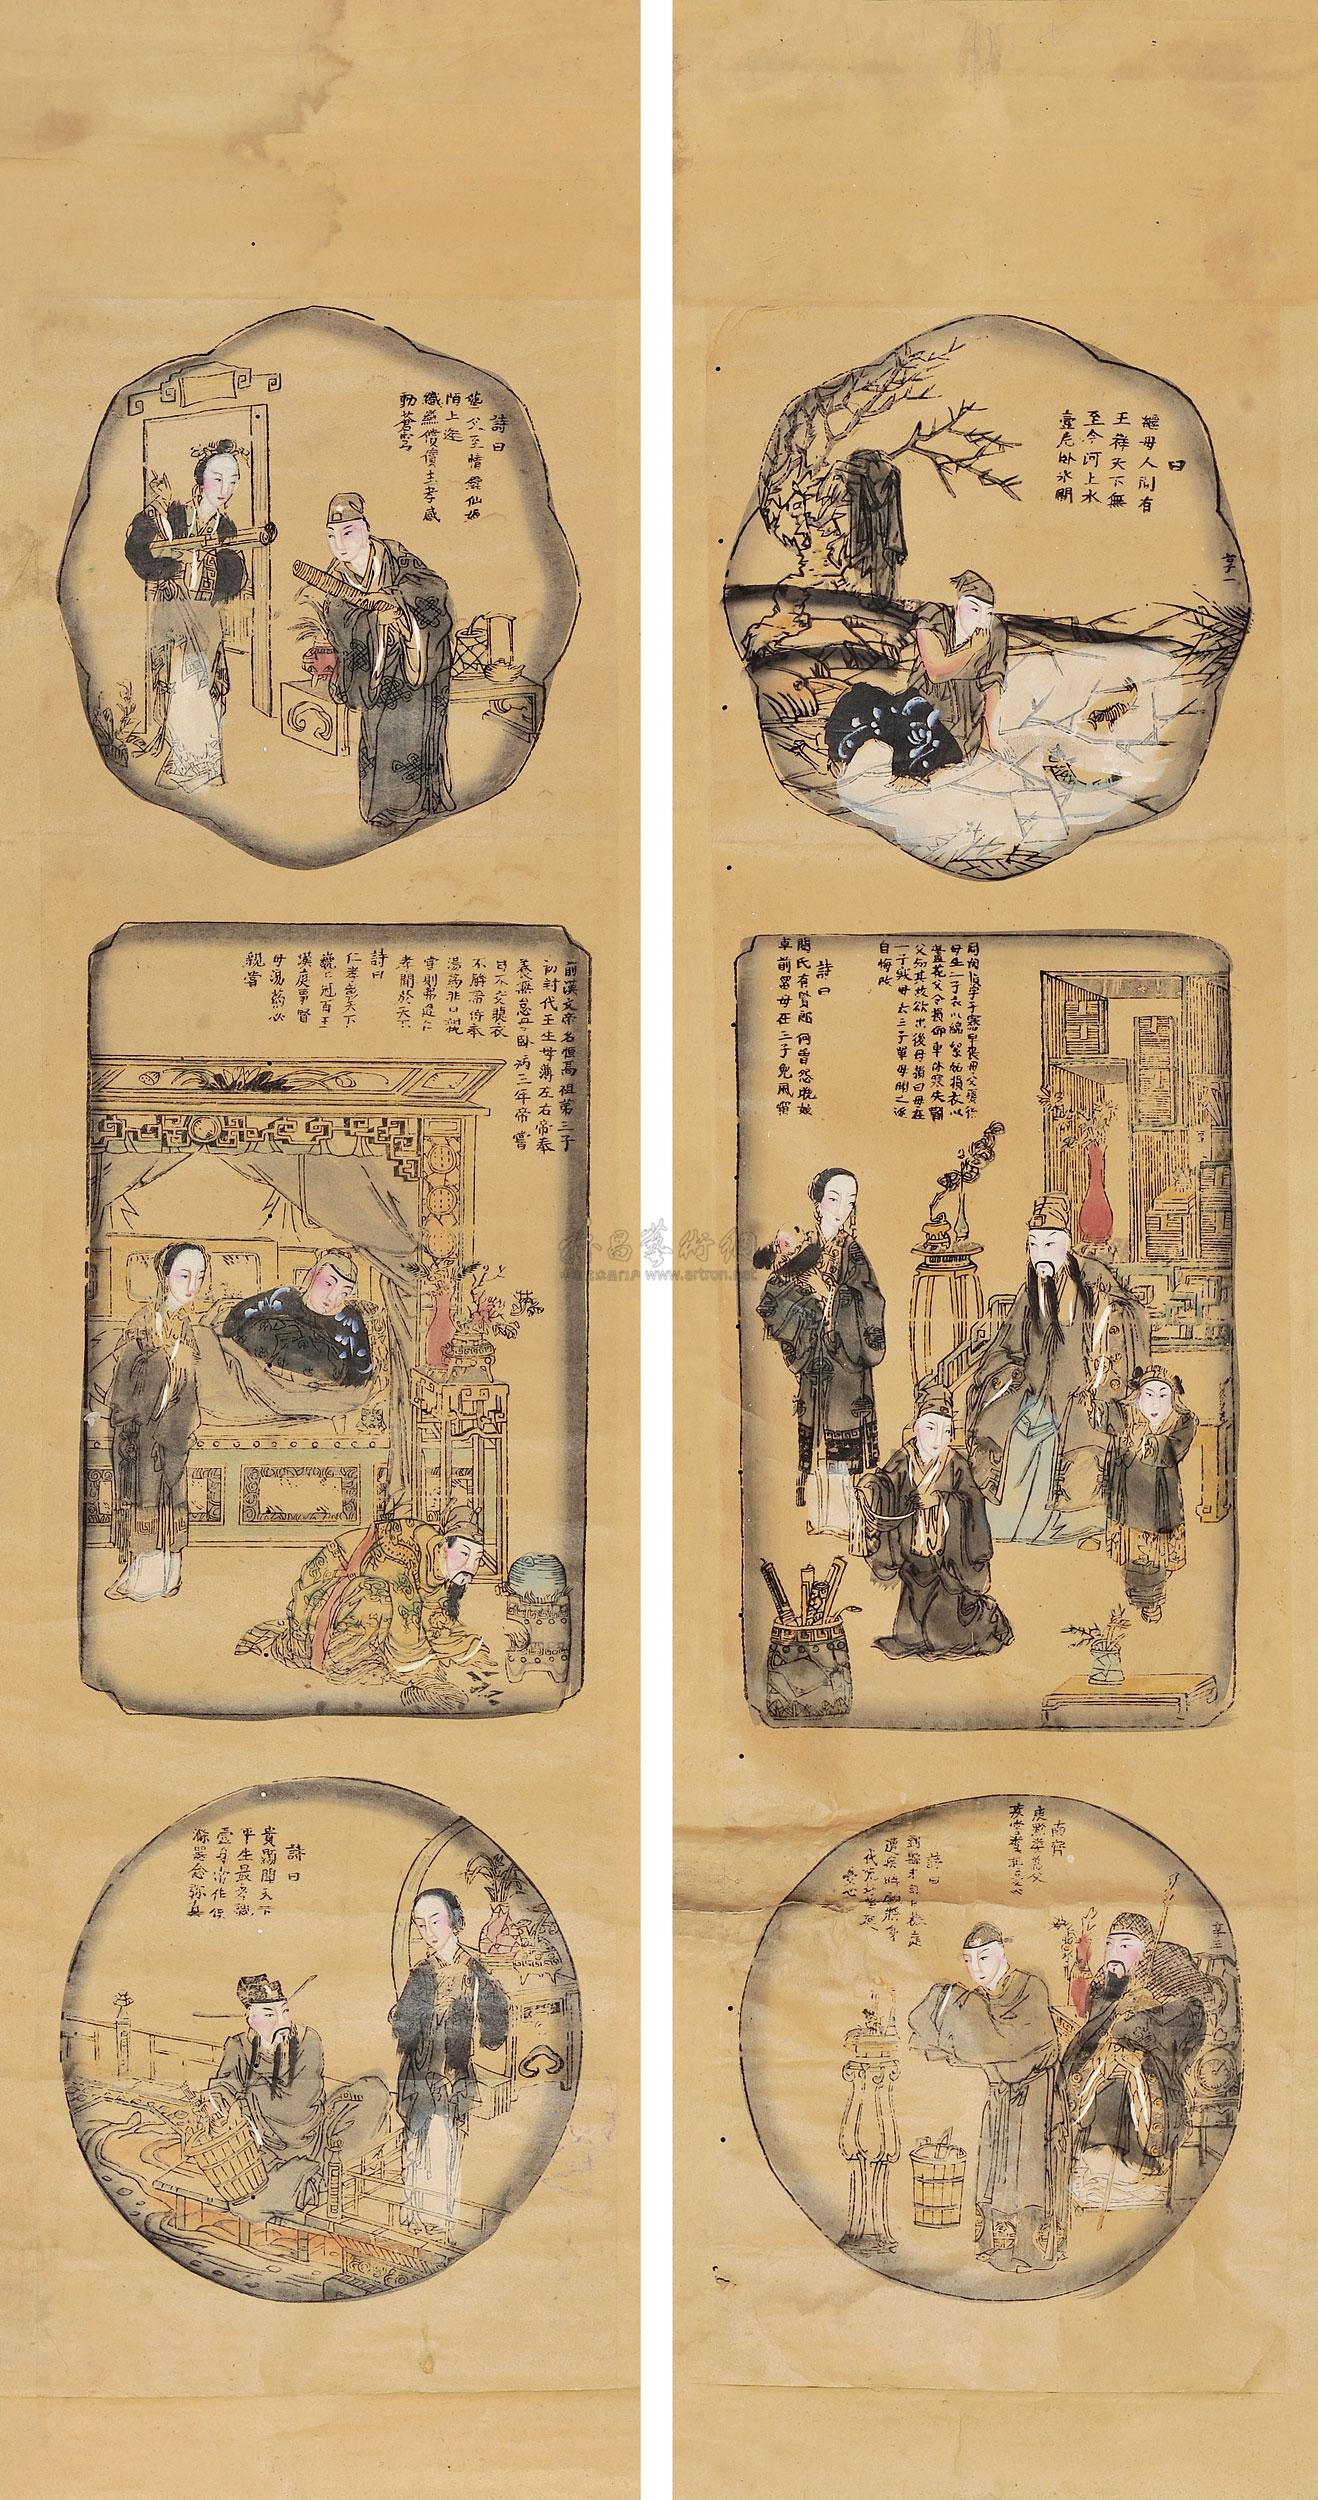 曰
繼母人间有
王祥天下無
至今河上水
壹 卧氷開
享一
周闵損字子騫早喪母父娶後
母生二子衣以綿絮妬損衣以
蘆花父令損御車体寒失靷
父知其故欲出後母損曰母在
一子寒母去三子單母聞之遂
自悔改
詩曰
閔氏有賢郎何曾怨晚娘
車前留母在三子免風霜
南齊
庾黔婁為父
疾嘗糞
詩曰
到縣未旬日椿庭
遺疾時願將身
代死北望起
憂心
享三
詩曰
葬父至情露仙姬
陌上逢
織縑償債主孝感
動蒼穹
前漢文帝名恒高祖第三子
初封代王生母薄左右帝奉
養無怠母卧病三年帝嘗
目不交睫衣
不解帶侍奉
湯藥非口親
嘗則弗進仁
孝聞於天下
詩曰
仁孝臨天下
巍々冠百王
漢庭事賢
母湯藥必
親嘗
詩曰
貴顯聞天下
平生最孝親
壹母常作役
滌器念弥真
雅昌藝術網
中国艺术品门户 www.artron.net